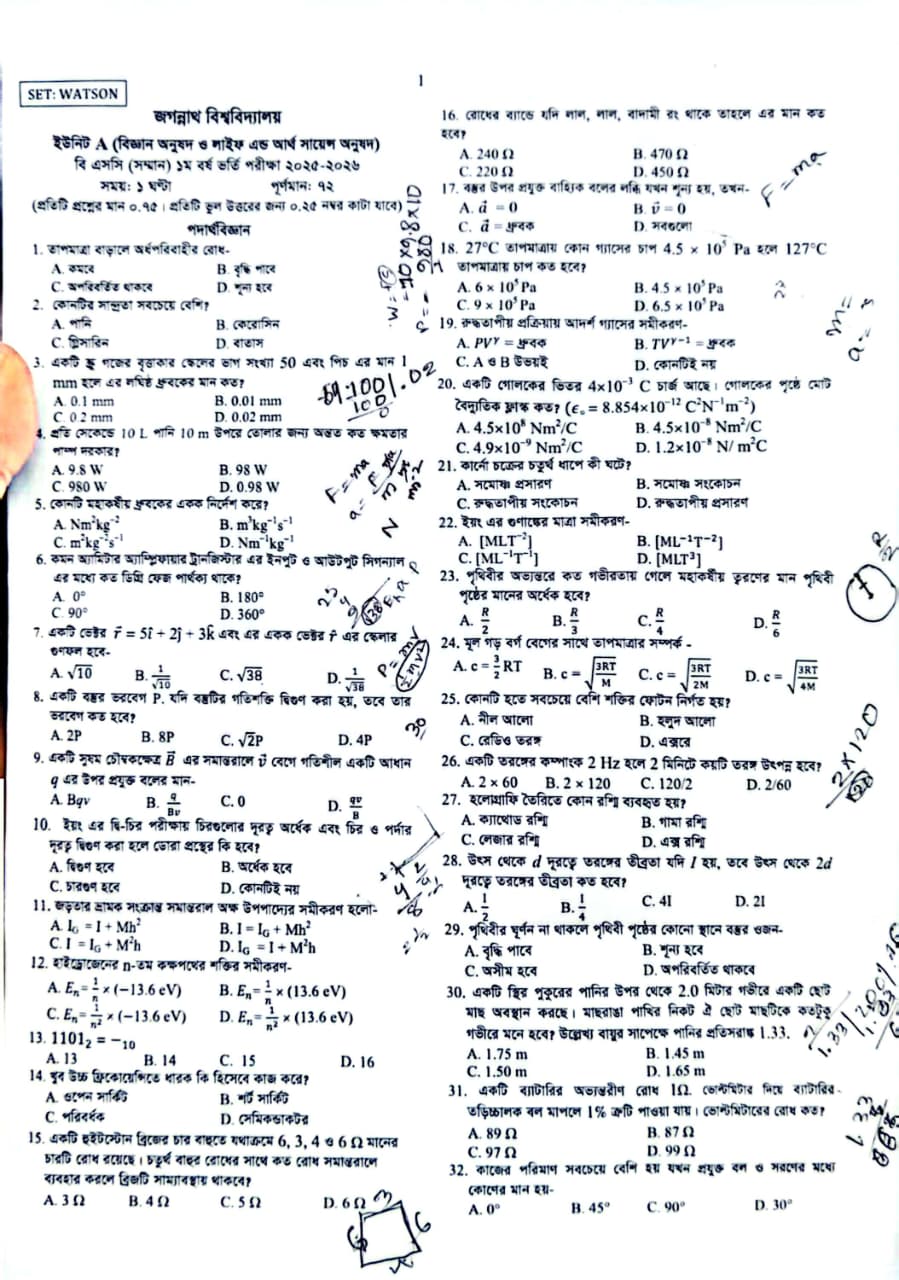 1
SET: WATSON
জগন্নাথ বিশ্ববিদ্যালয়
ইউনিট A (বিজ্ঞান অনুষদ ও লাইফ এন্ড আর্থ সায়েন্স অনুষদ)
বি এসসি (সম্মান) ১ম বর্ষ ভর্তি পরীক্ষা ২০২৫-২০২৬
সময়: ১ ঘন্টা পূর্ণমান: ৭২
(প্রতিটি প্রশ্নের মান ০.৭৫। প্রতিটি ভুল উত্তরের জন্য ০.২৫ নম্বর কাটা যাবে)
পদার্থবিজ্ঞান
1. তাপমাত্রা বাড়ালে অর্ধপরিবাহীর রোধ-
A. কমবে B. বৃদ্ধি পাবে
C. অপরিবর্তিত থাকবে D. শূন্য হবে
2. কোনটির সান্দ্রতা সবচেয়ে বেশি?
A. পানি B. কেরোসিন
C. গ্লিসারিন D. বাতাস
3. একটি স্ক্রু গজের বৃত্তাকার স্কেলের ভাগ সংখ্যা 50 এবং পিচ এর মান 1
mm হলে এর লঘিষ্ঠ ধ্রুবকের মান কত?
A. 0.1 mm B. 0.01 mm
C. 0.2 mm D. 0.02 mm
4. প্রতি সেকেন্ডে 10 L পানি 10 m উপরে তোলার জন্য অন্তত কত ক্ষমতার
পাম্প দরকার?
A. 9.8 W B. 98 W
C. 980 W D. 0.98 W
5. কোনটি মহাকর্ষীয় ধ্রুবকের একক নির্দেশ করে?
A. Nm²kg⁻² B. m³kg⁻¹s⁻¹
C. m²kg⁻²s⁻¹ D. Nm⁻¹kg⁻¹
6. কমন অ্যামিটার অ্যাম্প্লিফায়ার ট্রানজিস্টার এর ইনপুট ও আউটপুট সিগন্যাল
এর মধ্যে কত ডিগ্রি ফেজ পার্থক্য থাকে?
A. 0° B. 180°
C. 90° D. 360°
7. একটি ভেক্টর r⃗ = 5î + 2ĵ + 3k̂ এবং এর একক ভেক্টর r̂ এর স্কেলার
গুণফল হবে-
A. √10 B. 1/√10 C. √38 D. 1/√38
8. একটি বস্তুর ভরবেগ P. যদি বস্তুটির গতিশক্তি দ্বিগুণ করা হয়, তবে তার
ভরবেগ কত হবে?
A. 2P B. 8P C. √2P D. 4P
9. একটি সুষম চৌম্বকক্ষেত্র B⃗ এর সমান্তরালে v⃗ বেগে গতিশীল একটি আধান
q এর উপর প্রযুক্ত বলের মান-
A. Bqv B. q/Bv C. 0 D. qv/B
10. ইয়ং এর দ্বি-চির পরীক্ষায় চিরগুলোর দূরত্ব অর্ধেক এবং চির ও পর্দার
দূরত্ব দ্বিগুণ করা হলে ডোরা প্রস্থের কি হবে?
A. দ্বিগুণ হবে B. অর্ধেক হবে
C. চারগুণ হবে D. কোনটিই নয়
11. জড়তার ভ্রামক সংক্রান্ত সমান্তরাল অক্ষ উপপাদ্যের সমীকরণ হলো-
A. I_G = I + Mh² B. I = I_G + Mh²
C. I = I_G + M²h D. I_G = I + M²h
12. হাইড্রোজেনের n-তম কক্ষপথের শক্তির সমীকরণ-
A. Eₙ= 1/n × (−13.6 eV) B. Eₙ= 1/n × (13.6 eV)
C. Eₙ= 1/n² × (−13.6 eV) D. Eₙ= 1/n² × (13.6 eV)
13. 1101₂ = −₁₀
A. 13 B. 14 C. 15 D. 16
14. খুব উচ্চ ফ্রিকোয়েন্সিতে ধারক কি হিসেবে কাজ করে?
A. ওপেন সার্কিট B. শর্ট সার্কিট
C. পরিবর্ধক D. সেমিকন্ডাকটর
15. একটি হুইটস্টোন ব্রিজের চার বাহুতে যথাক্রমে 6, 3, 4 ও 6 Ω মানের
চারটি রোধ রয়েছে। চতুর্থ বাহুর রোধের সাথে কত রোধ সমান্তরালে
ব্যবহার করলে ব্রিজটি সাম্যাবস্থায় থাকবে?
A. 3 Ω B. 4 Ω C. 5 Ω D. 6 Ω
16. রোধের ব্যান্ডে যদি লাল, লাল, বাদামী রং থাকে তাহলে এর মান কত
হবে?
A. 240 Ω B. 470 Ω
C. 220 Ω D. 450 Ω
17. বস্তুর উপর প্রযুক্ত বাহ্যিক বলের লব্ধি যখন শূন্য হয়, তখন-
A. a⃗ = 0 B. v⃗ = 0
C. a⃗ = ধ্রুবক D. সবগুলো
18. 27°C তাপমাত্রায় কোন গ্যাসের চাপ 4.5 × 10⁵ Pa হলে 127°C
তাপমাত্রায় চাপ কত হবে?
A. 6 × 10⁵ Pa B. 4.5 × 10⁵ Pa
C. 9 × 10⁵ Pa D. 6.5 × 10⁵ Pa
19. রুদ্ধতাপীয় প্রক্রিয়ায় আদর্শ গ্যাসের সমীকরণ-
A. PV^γ = ধ্রুবক B. TV^γ⁻¹ = ধ্রুবক
C. A ও B উভয়ই D. কোনটিই নয়
20. একটি গোলকের ভিতর 4×10⁻³ C চার্জ আছে। গোলকের পৃষ্ঠে মোট
বৈদ্যুতিক ফ্লাক্স কত? (ε₀ = 8.854×10⁻¹² C²N⁻¹m⁻²)
A. 4.5×10⁸ Nm²/C B. 4.5×10⁻⁸ Nm²/C
C. 4.9×10⁻⁹ Nm²/C D. 1.2×10⁻⁸ N/ m²C
21. কার্নো চক্রের চতুর্থ ধাপে কী ঘটে?
A. সমোষ্ণ প্রসারণ B. সমোষ্ণ সংকোচন
C. রুদ্ধতাপীয় সংকোচন D. রুদ্ধতাপীয় প্রসারণ
22. ইয়ং এর গুণাঙ্কের মাত্রা সমীকরণ-
A. [MLT⁻²] B. [ML⁻¹T⁻²]
C. [ML⁻¹T⁻¹] D. [MLT³]
23. পৃথিবীর অভ্যন্তরে কত গভীরতায় গেলে মহাকর্ষীয় ত্বরণের মান পৃথিবী
পৃষ্ঠের মানের অর্ধেক হবে?
A. R/2 B. R/3 C. R/4 D. R/6
24. মূল গড় বর্গ বেগের সাথে তাপমাত্রার সম্পর্ক -
A. c = 3/2 RT B. c = √(3RT/M) C. c = √(3RT/2M) D. c = √(3RT/4M)
25. কোনটি হতে সবচেয়ে বেশি শক্তির ফোটন নির্গত হয়?
A. নীল আলো B. হলুদ আলো
C. রেডিও তরঙ্গ D. এক্সরে
26. একটি তরঙ্গের কম্পাংক 2 Hz হলে 2 মিনিটে কয়টি তরঙ্গ উৎপন্ন হবে?
A. 2 × 60 B. 2 × 120 C. 120/2 D. 2/60
27. হলোগ্রাফি তৈরিতে কোন রশ্মি ব্যবহৃত হয়?
A. ক্যাথোড রশ্মি B. গামা রশ্মি
C. লেজার রশ্মি D. এক্স রশ্মি
28. উৎস থেকে d দূরত্বে তরঙ্গের তীব্রতা যদি I হয়, তবে উৎস থেকে 2d
দূরত্বে তরঙ্গের তীব্রতা কত হবে?
A. 1/2 B. 1/4 C. 4I D. 2I
29. পৃথিবীর ঘূর্ণন না থাকলে পৃথিবী পৃষ্ঠের কোনো স্থানে বস্তুর ওজন-
A. বৃদ্ধি পাবে B. শূন্য হবে
C. অসীম হবে D. অপরিবর্তিত থাকবে
30. একটি স্থির পুকুরের পানির উপর থেকে 2.0 মিটার গভীরে একটি ছোট
মাছ অবস্থান করছে। মাছরাঙা পাখির নিকট ঐ ছোট মাছটিকে কতটুকু
গভীরে মনে হবে? উল্লেখ্য বায়ুর সাপেক্ষে পানির প্রতিসরাঙ্ক 1.33.
A. 1.75 m B. 1.45 m
C. 1.50 m D. 1.65 m
31. একটি ব্যাটারির অভ্যন্তরীণ রোধ 1Ω. ভোল্টমিটার দিয়ে ব্যাটারির
তড়িচ্চালক বল মাপলে 1% ত্রুটি পাওয়া যায়। ভোল্টমিটারের রোধ কত?
A. 89 Ω B. 87 Ω
C. 97 Ω D. 99 Ω
32. কাজের পরিমাণ সবচেয়ে বেশি হয় যখন প্রযুক্ত বল ও সরণের মধ্যে
কোণের মান হয়-
A. 0° B. 45° C. 90° D. 30°
F=ma
F=ma
2×120